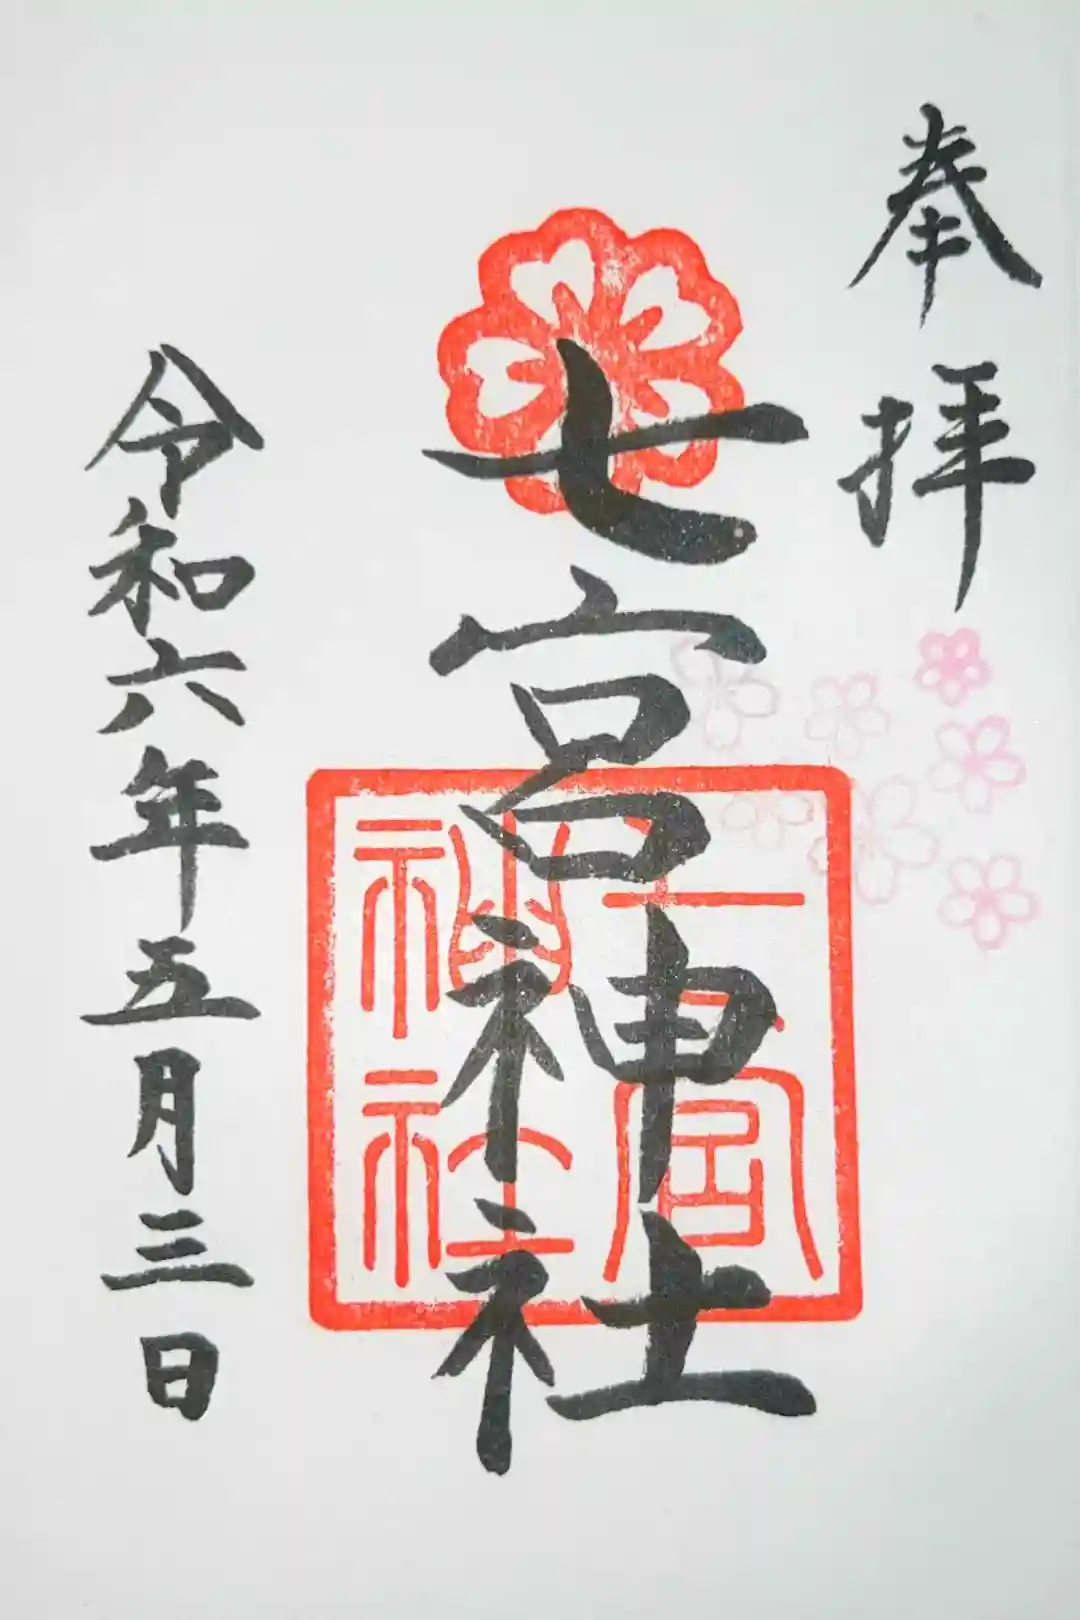 奉拝
七宮神社
七宮神社
令和六年五月三日